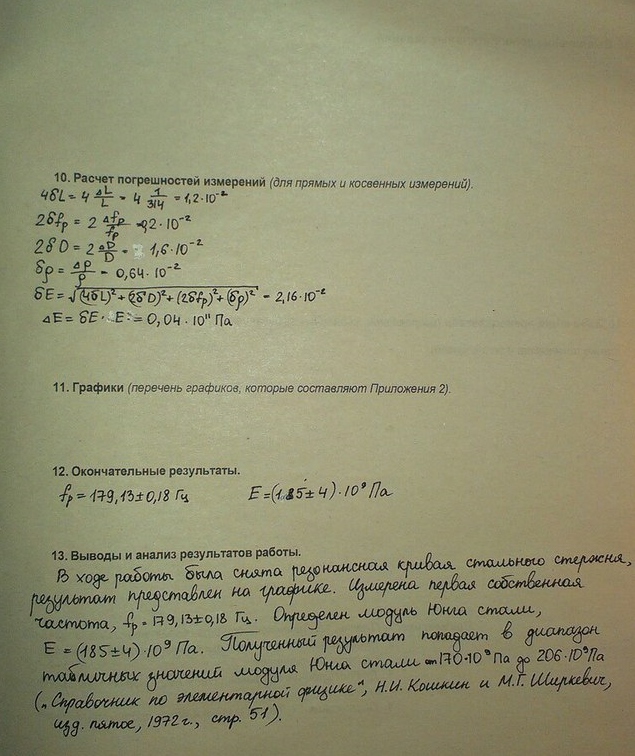 10. Расчет погрешностей измерений (для прямых и косвенных измерений).
4δL = 4 ΔL/L = 4 1/314 = 1,2·10⁻²
2δfₚ = 2 Δfₚ/fₚ = 0,2·10⁻²
2δD = 2 ΔD/D = 1,6·10⁻²
δρ = Δρ/ρ = 0,64·10⁻²
δE = √((4δL)²+(2δD)²+(2δfₚ)²+(δρ)²) = 2,16·10⁻²
ΔE = δE · E = 0,04·10¹¹ Па
11. Графики (перечень графиков, которые составляют Приложения 2).
12. Окончательные результаты.
fₚ = 179,13±0,18 Гц E=(185±4)·10⁹ Па
13. Выводы и анализ результатов работы.
В ходе работы была снята резонансная кривая стального стержня,
результат представлен на графике. Измерена первая собственная
частота, fₚ = 179,13±0,18 Гц. Определен модуль Юнга стали,
E = (185±4)·10⁹ Па. Полученный результат попадает в диапазон
табличных значений модуля Юнга стали от 170·10⁹ Па до 206·10⁹ Па
(„Справочник по элементарной физике", Н.И. Кошкин и М.Г. Ширкевич,
изд. пятое, 1972 г., стр. 51).